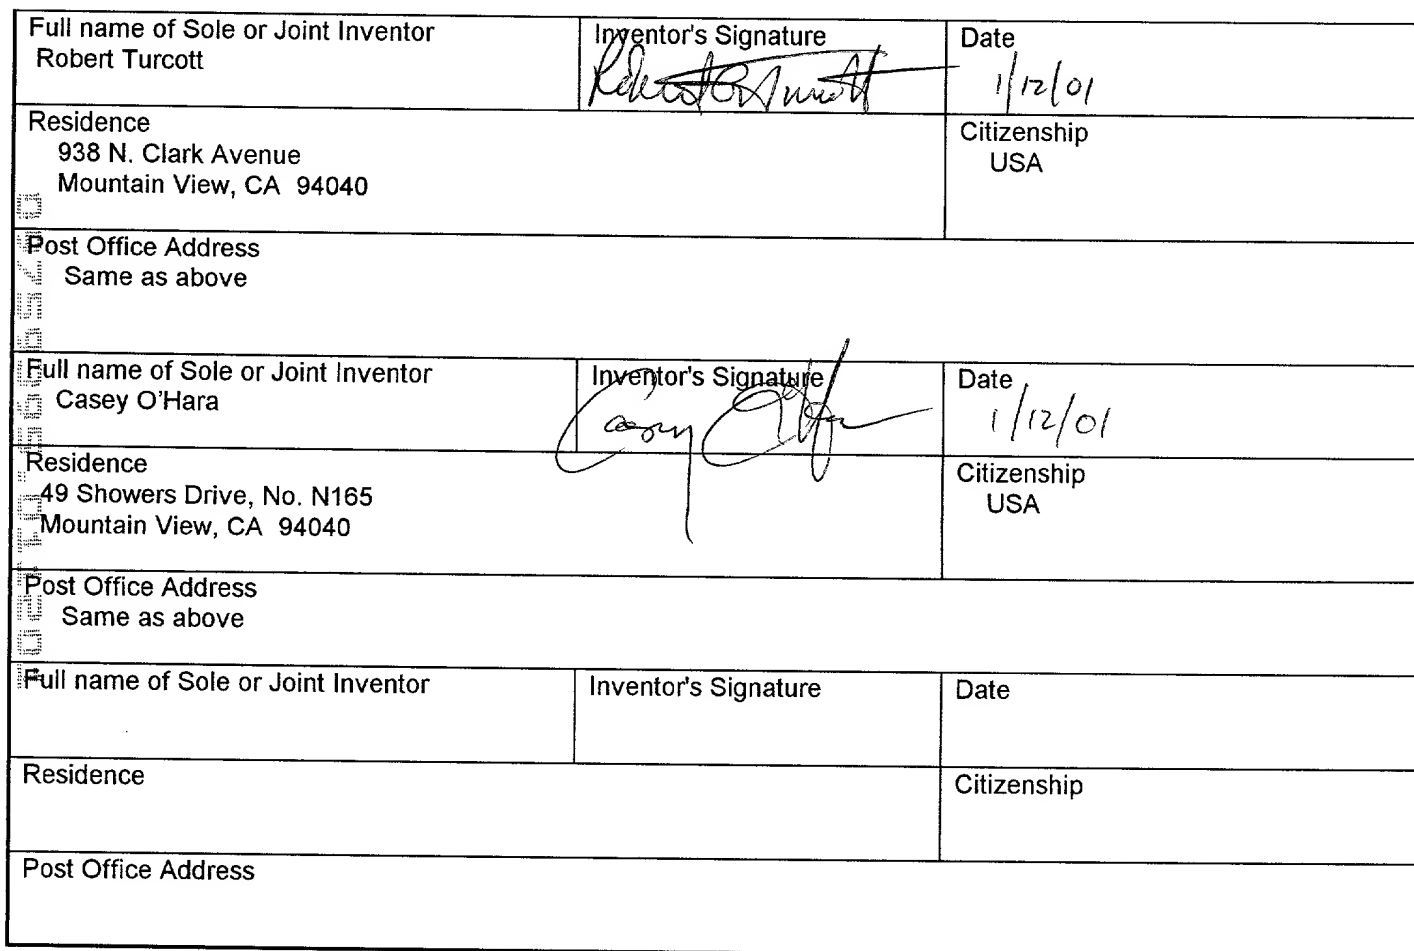 Full name of Sole or Joint Inventor
Robert Turcott
Inventor's Signature
Date
1/12/01
Residence
938 N. Clark Avenue
Mountain View, CA 94040
Citizenship
USA
Post Office Address
Same as above
Full name of Sole or Joint Inventor
Casey O'Hara
Inventor's Signature
Casey O'Hara
Date
1/12/01
Residence
49 Showers Drive, No. N165
Mountain View, CA 94040
Citizenship
USA
Post Office Address
Same as above
Full name of Sole or Joint Inventor
Inventor's Signature
Date
Residence
Citizenship
Post Office Address